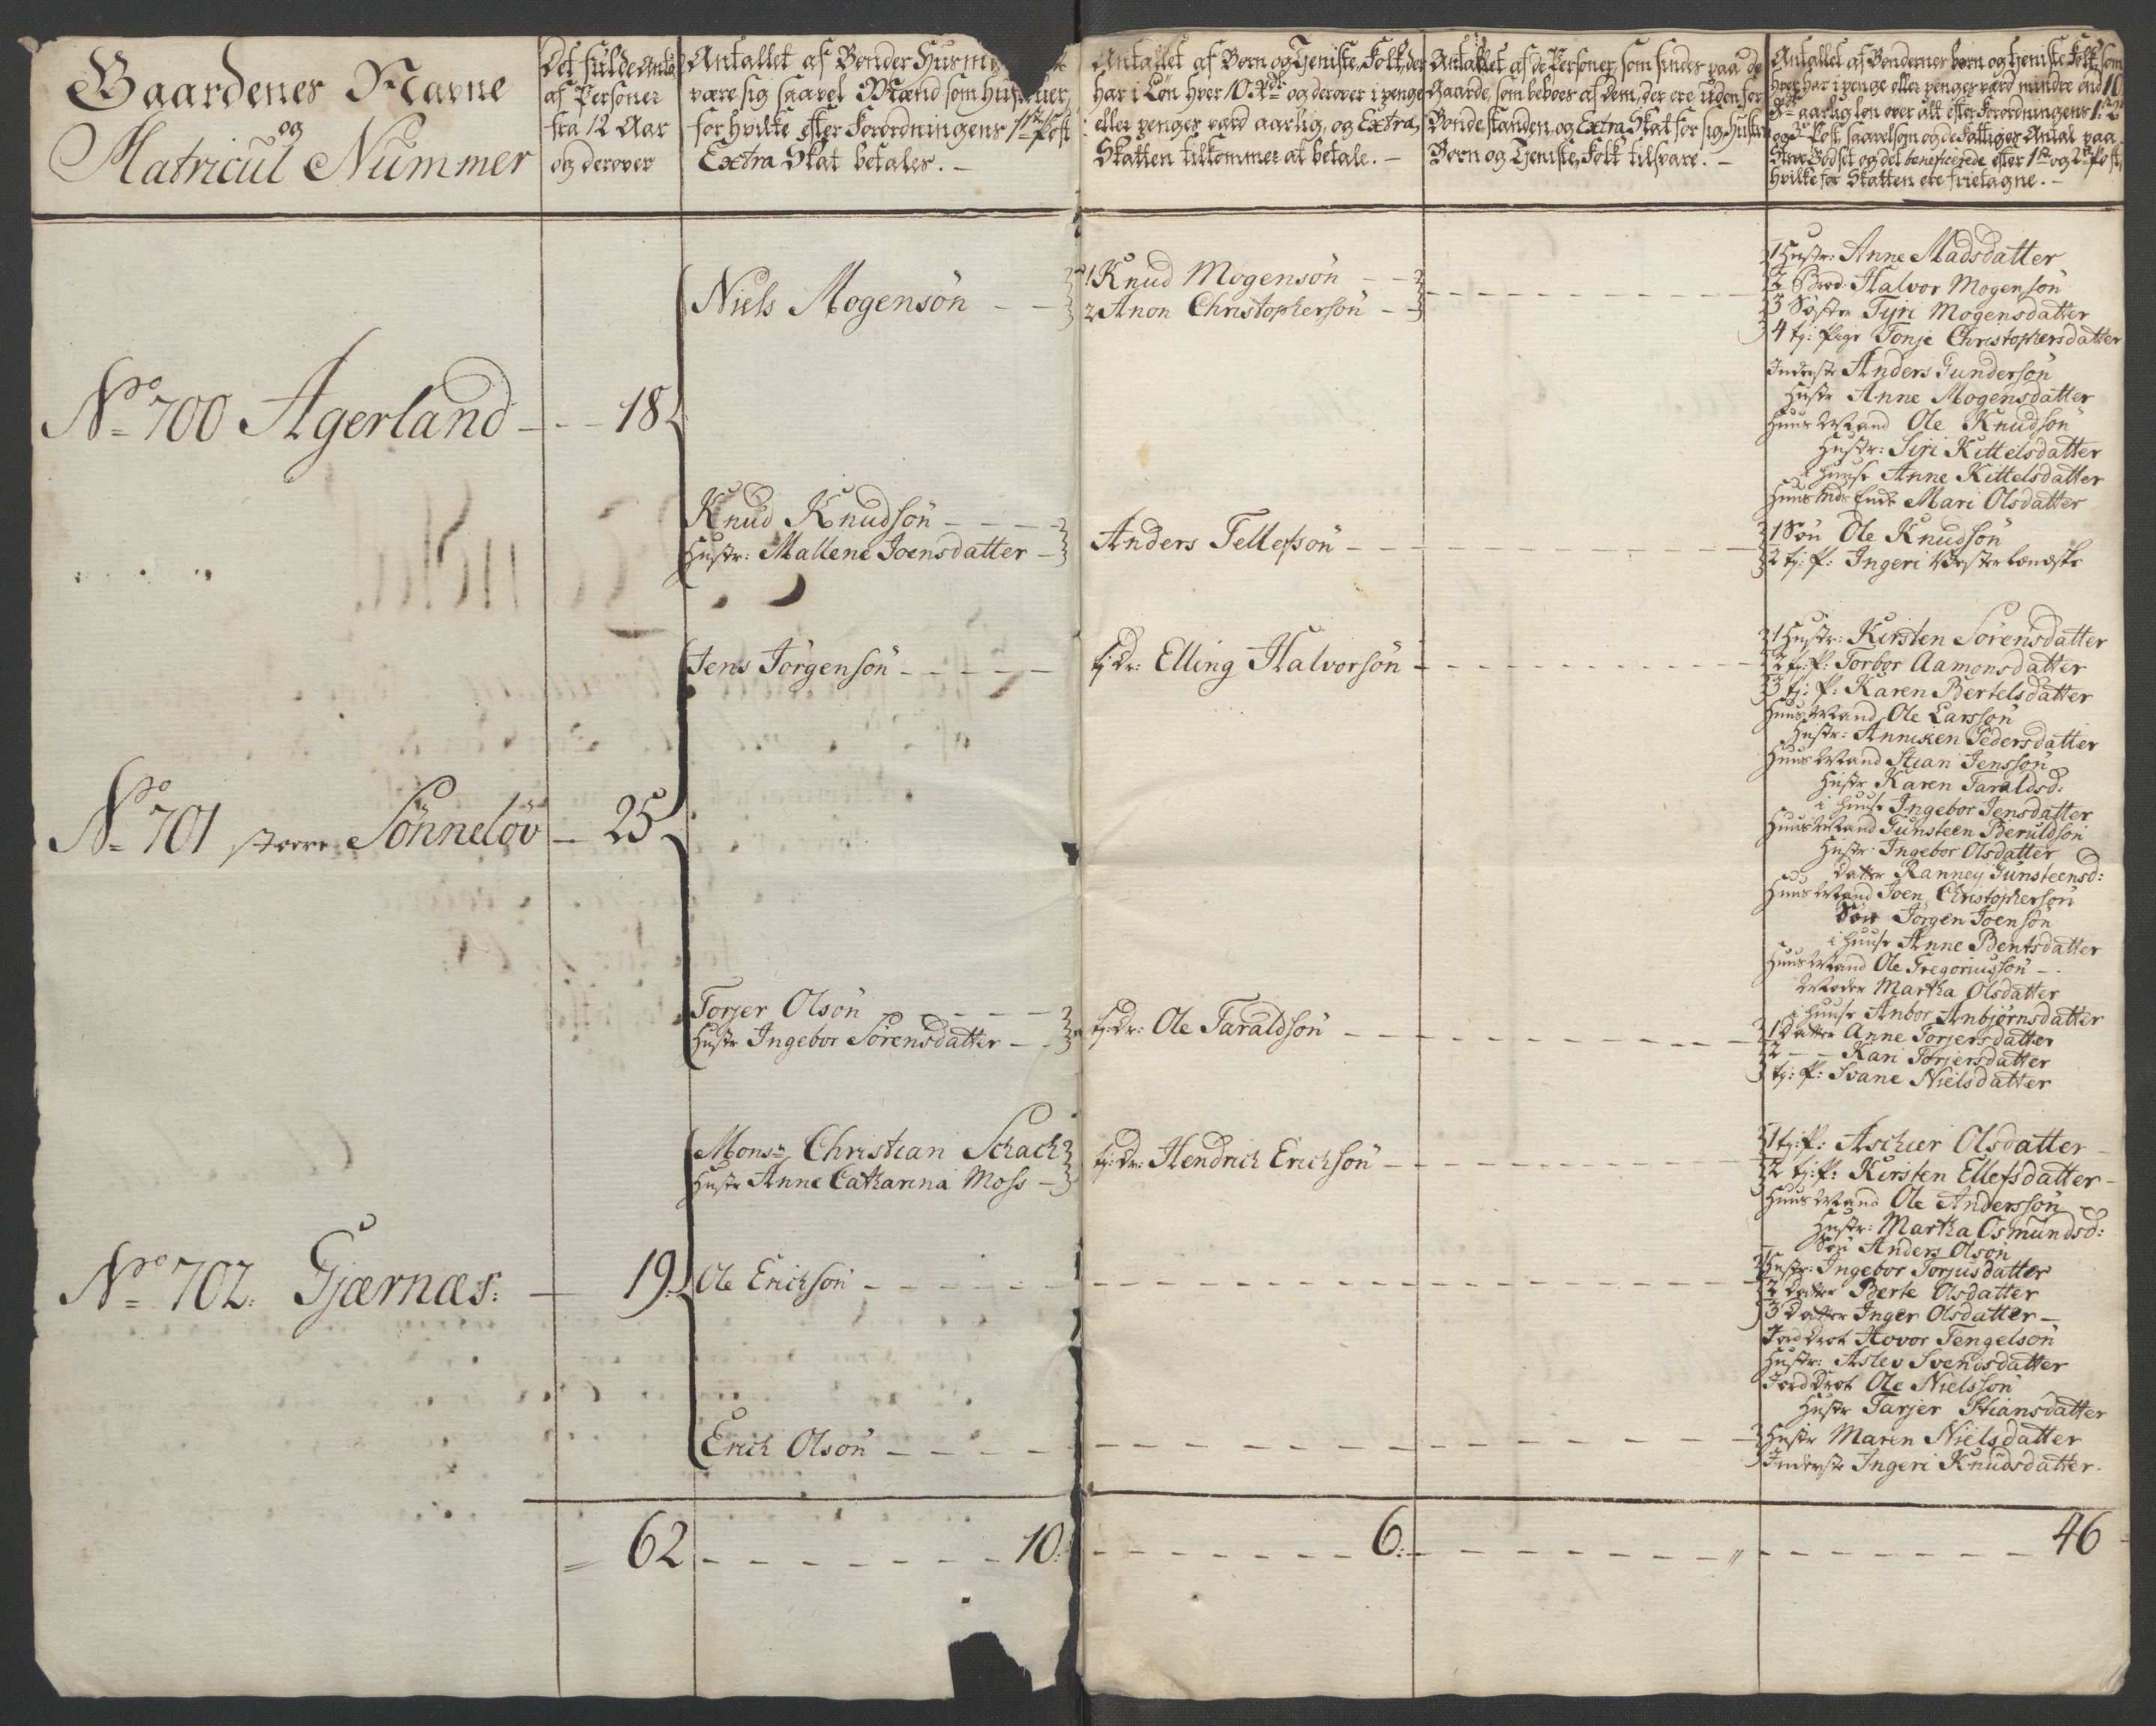 Gaardenes Navne
og
Matricul Nummer
Det fulde Antal
af Personer
fra 12 Aar
og derover
Antallet af Bønder Husm
være sig saavel Mænd som Hustruer,
for hvilke efter Forordningens 1ste Post
Extra Skat betales. -
Antallet af Børn og Tjeniste Folk, der
har i Løn hver 10 Rdr og derover i penge
eller penges værd aarlig, og Extra
Skatten tilkommer at betale. -
Antallet af de Personer, som findes paa de
Gaarde, som beboes af dem, der ere uden for
Bonde standen, og Extra Skat for sig, Hustru
Børn og Tjeniste Folk tilsvare. -
Antallet af Bøndernes børn og tjeniste Folk, som
hver har i penge eller penges værd mindre end 10
Rdr aarlig løn over alt efter Forordningens 1te 2den
og Post, saavelsom og de Fattiges Antal paa
Stæe Godset og det beneficerede efter 1te og 2den Post,
hvilke for Skatten ere frietagne. -
No 700 Agerland - - - 18
Niels Mogensön - -
1 Knud Mogensön - -
2 Anon Christophersön - -
1 Hustr: Anne Madsdatter
2 Brod: Halvor Mogensön
3 Söster Tyri Mogensdatter
4 tj: Pige Tonje Christophersdatter
Inderste Anders Gundersön
Hustr Anne Mogensdatter
Huus Mand Ole Knudsön
Hustr: Siri Kittelsdatter
i huuse Anne Kittelsdatter
Huus Mds Enke Mari Olsdatter
Knud Knudsön - - - -
Hustr: Mallene Joensdatter -
Anders Tellefsön -
1 Sön Ole Knudsön
2 tj: P: Ingeri Westerlændske
No 701 store Sönnelöv - 25
Jens Jörgensön - - - - -
tj: Dr: Elling Halvorsön -
1 Hustr: Kirsten Sörensdatter
2 tj: P: Torbor Aamonsdatter
3 tj: P: Karen Bertelsdatter
Huus Mand Ole Larssön
Hustr: Anniken Pedersdatter
Huus Mand Stian Jenssön
Hustr Karen Taraldsd:
i huuse Ingebor Jensdatter
Huus Mand Gunsteen Beruldsön
Hustr: Ingebor Olsdatter
Datter Ranney Gunsteensd:
Huus Mand Joen Christophersön
Sön Jörgen Joensön
i huuse Anne Bentsdatter
Huus Mand Ole Gregoriussön -
Moder Martha Olsdatter
i huuse Anbor Anbjörnsdatter
Torjer Olsön - - - -
Hustr Ingebor Sörensdatter - -
tj: Dr: Ole Taraldsön -
1 Datter Anne Torjersdatter
2 - - Kari Torjersdatter
tj: P: Svane Nielsdatter
No 702: Gjærnæs: - 19
Monsr Christian Schach
Hustr Anne Catharina Moss -
tj: Dr: Hendrich Erichsön -
1 tj: P: Aschier Olsdatter -
2 tj: P: Kirsten Ellefsdatter -
Huus Mand Ole Anderssön
Hustr: Martha Osmundsd:
Sön Anders Olsön
Ole Erichsön - - - - -
1 Hustr: Ingebor Torjusdatter
2 Datter Berte Olsdatter
3 Datter Inger Olsdatter -
Jord Drot Hovor Tengelsön
Hustr: Aslev Svendsdatter
Jord Drot Ole Nielssön
Hustr Tarjer Stiansdatter
Erich Olsön - - - -
Hustr Maren Nielsdatter
Inderste Ingeri Knudsdatter.
62 - - - - - - - 10: - - - - - - 6: - - - - - - " - - - - - - 46